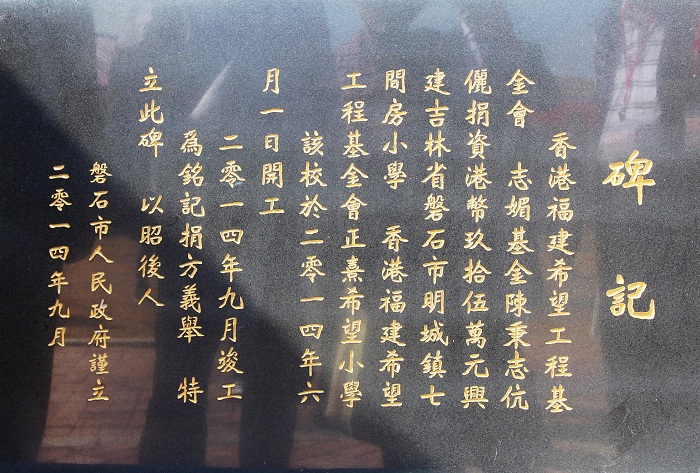 碑記
香港福建希望工程基
金會 志媚基金陳秉志伉
儷捐資港幣玖拾伍萬元興
建吉林省磐石市明城鎮七
間房小學 香港福建希望
工程基金會正熹希望小學
該校於二零一四年六
月一日開工
二零一四年九月竣工
為銘記捐方義舉 特
立此碑 以昭後人
磐石市人民政府謹立
二零一四年九月